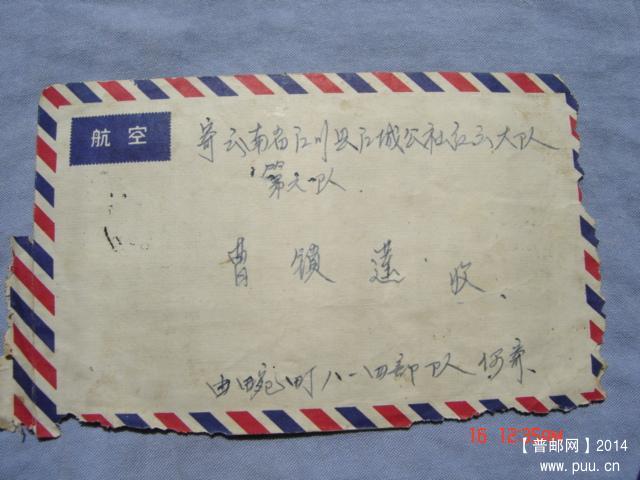 航空
寄云南省江川县江城公社红云大队
第六队
曹锁莲 收
由畹町八一四部队 何寄
16 12:35PM
【普邮网】2014
www.puu.cn